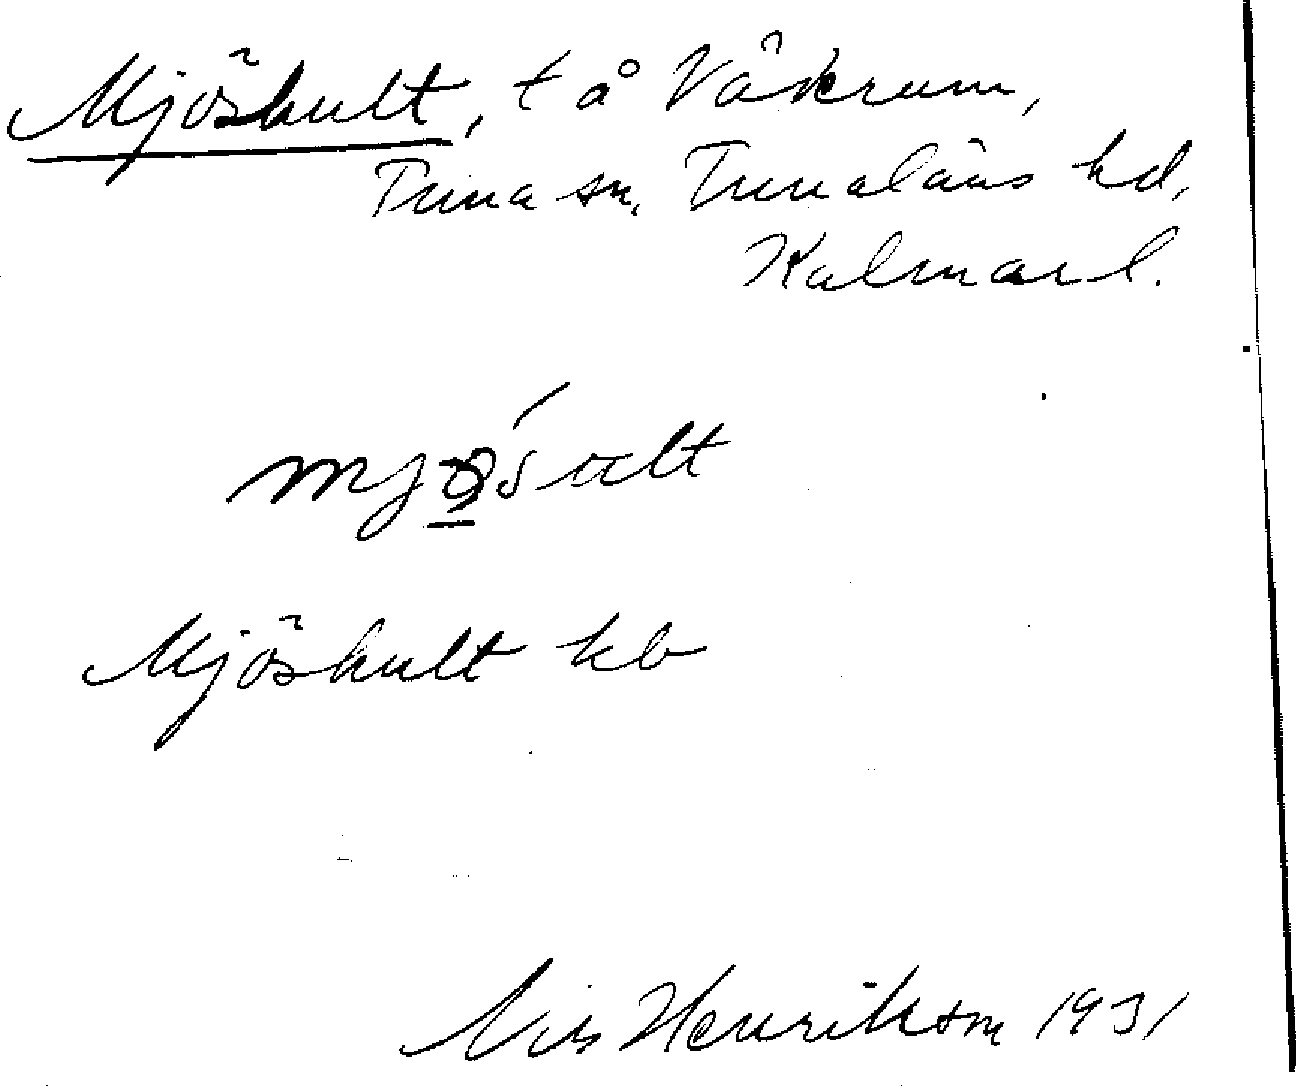 Mjöshult, t å Våkrum,
Tuna sn, Tunaläns hd,
Kalmar l.
mjo̲śult
Mjöshult kb
Nils Henrikson 1931